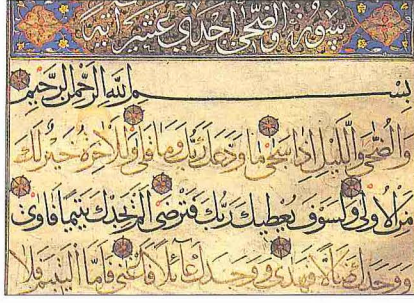 سورة والضحى احدى عشر اية
بسم الله الرحمن الرحيم
والضحى والليل اذا سجى ما ودعك ربك وما قلى وللاخرة خير لك
من الاولى ولسوف يعطيك ربك فترضى الم يجدك يتيما فاوى
ووجدك ضالا فهدى ووجدك عائلا فاغنى فاما اليتيم فلا